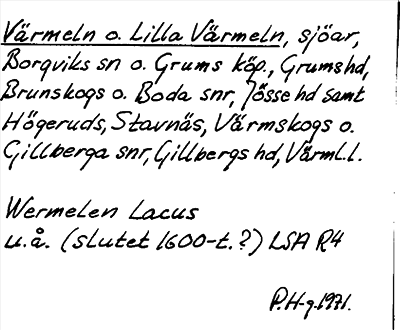 Värmeln o. Lilla Värmeln, sjöar,
Borgviks sn o. Grums köp., Grums hd,
Brunskogs o. Boda snr, Jösse hd samt
Högeruds, Stavnäs, Värmskogs o.
Gillberga snr, Gillbergs hd, Värml. l.
Wermelen Lacus
u.å. (slutet 1600-t.?) LSA R4
P.H-g. 1971.